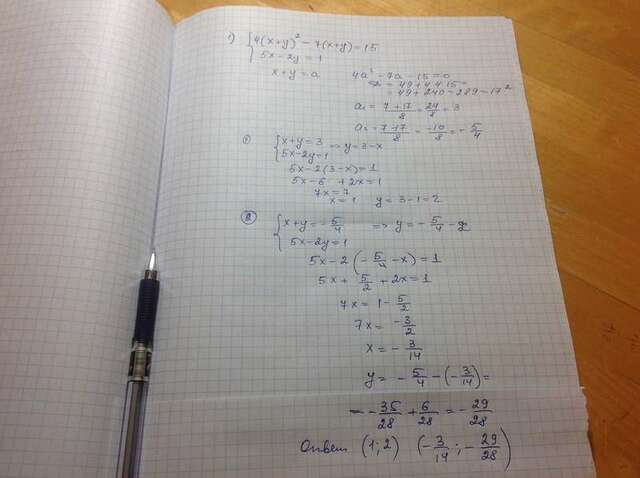 1) { 4(x+y)² - 7(x+y) = 15
5x - 2y = 1
x + y = a 4a² - 7a - 15 = 0
D = 49 + 4·4·15 =
= 49 + 240 = 289 = 17²
a₁ = (7+17)/8 = 24/8 = 3
a₂ = (7-17)/8 = -10/8 = -5/4
① { x+y = 3 => y = 3-x
5x - 2y = 1
5x - 2(3-x) = 1
5x - 6 + 2x = 1
7x = 7
x = 1 y = 3-1 = 2
② { x+y = -5/4 => y = -5/4 - x
5x - 2y = 1
5x - 2(-5/4 - x) = 1
5x + 5/2 + 2x = 1
7x = 1 - 5/2
7x = -3/2
x = -3/14
y = -5/4 - (-3/14) =
= -35/28 + 6/28 = -29/28
Ответ (1; 2) (-3/14; -29/28)